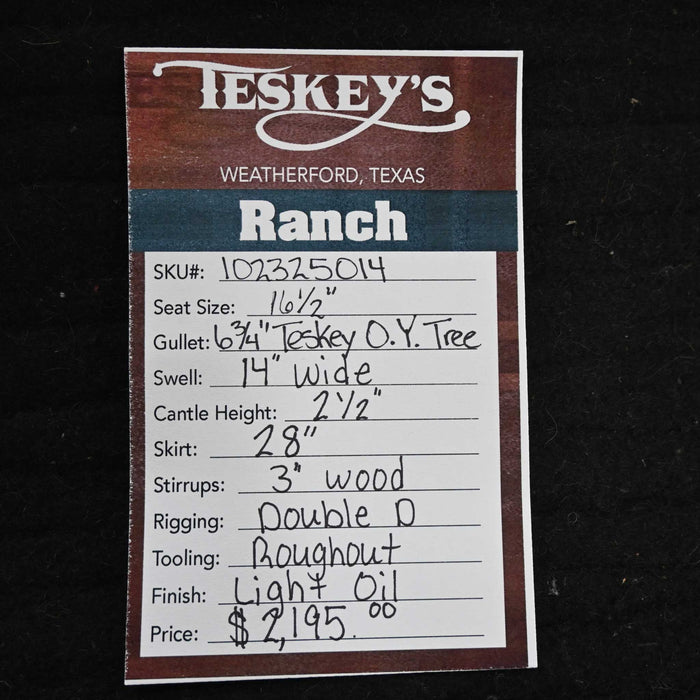 TESKEY'S
WEATHERFORD, TEXAS
Ranch
SKU#: 102325014
Seat Size: 16½"
Gullet: 6¾" Teskey O.Y. Tree
Swell: 14" wide
Cantle Height: 2½"
Skirt: 28"
Stirrups: 3" wood
Rigging: Double D
Tooling: Roughout
Finish: Light Oil
Price: $2,195.00